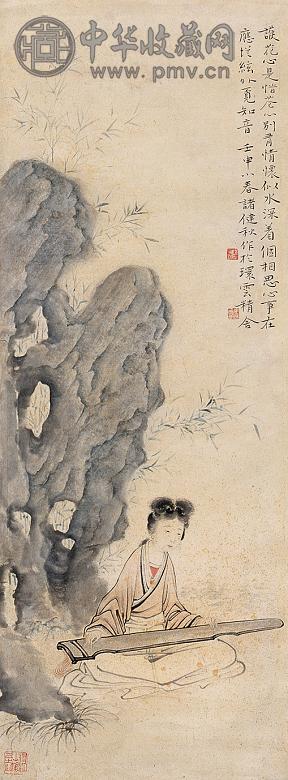 中华收藏网
www.pmv.cn
護花心是惜花心別有情懷似
水深着個相思心事在
應從絃外覓知音 壬申小春諸健秋作於環雲精舍